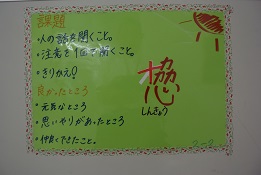 課題
・人の話を聞くこと。
・注意を1回で聞くこと。
・きりかえ!
良かったところ
・元気なところ
・思いやりがあったところ
・仲良くできたこと。
協心
しんきょう
2-2